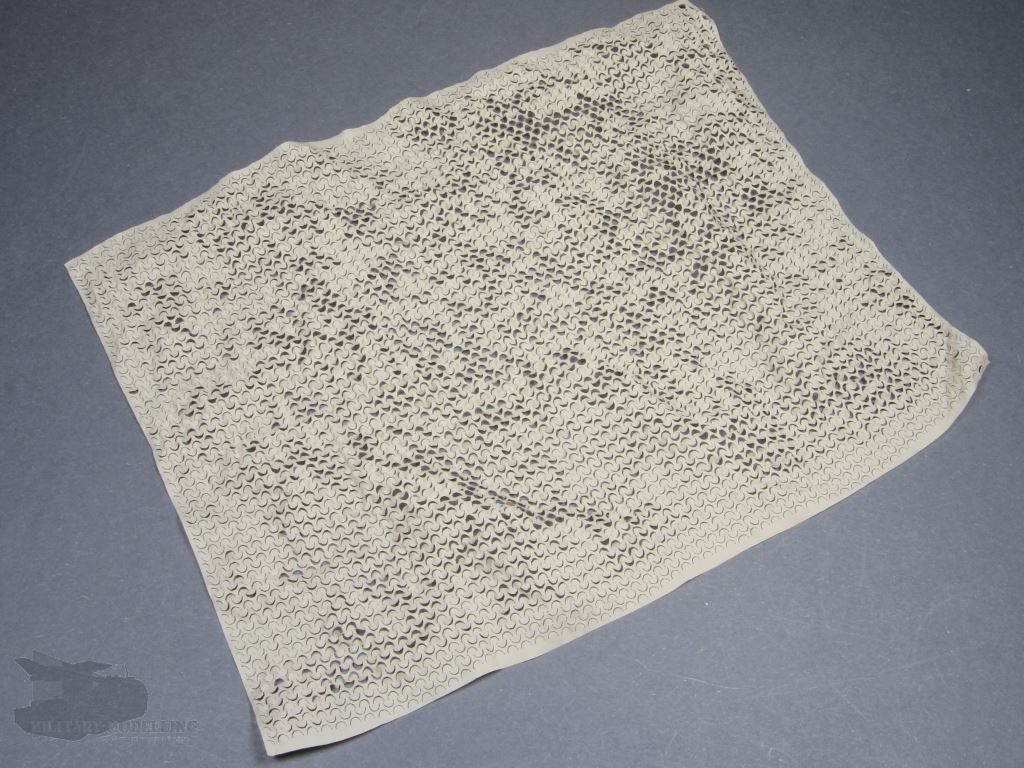 MILITARY MODELLING